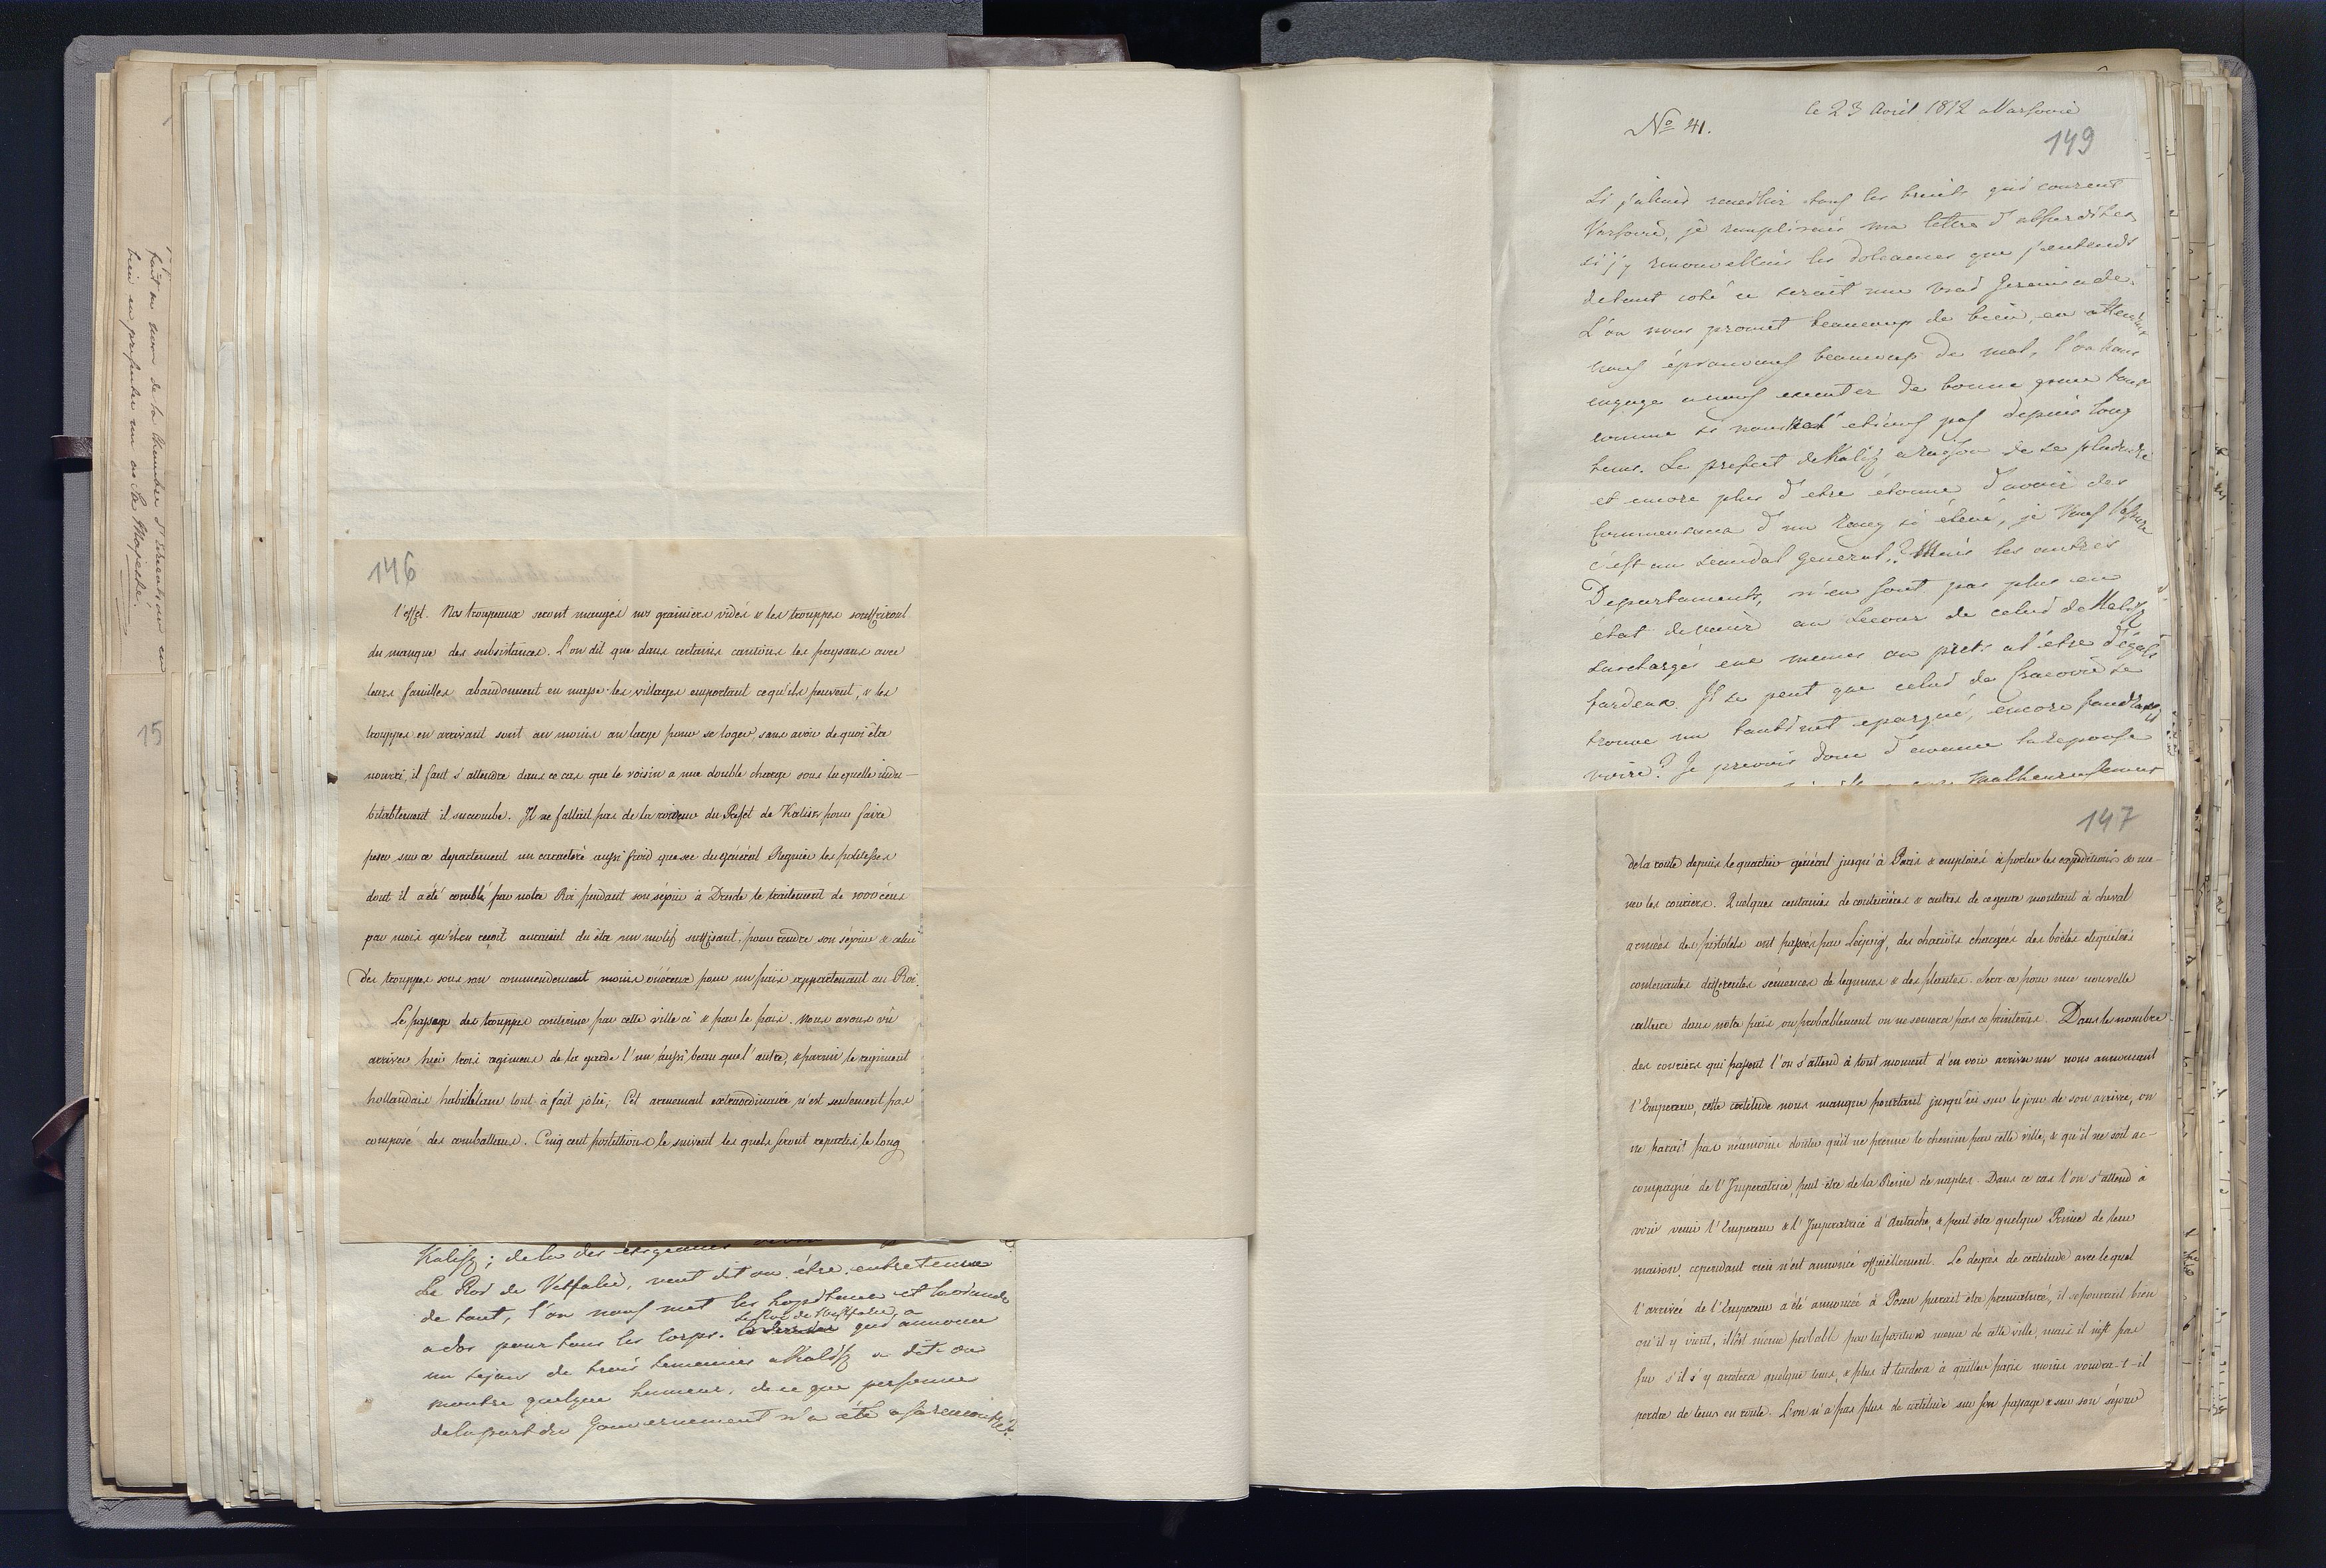 fait au nom de la chambre d'
bien en presenter un a Sa Majesté.
15
146
l'effet. Nos troupeaux seront mangés nos grainiers vidés & les trouppes souffriront
du manque des subsistances. L'on dit que dans certains cantons les paysans avec
leurs familles abandonnent en masse les villages emportant ce qu'ils peuvent, & les
trouppes en arrivant sont au moins au large pour se loger, sans avoir de quoi être
nourri, il faut s'attendre dans ce cas que le voisin a une double charge sous laquelle indu-
bitablement il succombe. Il ne fallait pas de la roideur du Préfet de Kalisz pour faire
peser sur ce departement un caractère aussi froid que ce du général Regnier les politesses
dont il a été comblé par notre Roi pendant son séjour à Dresde le traitement de 1000 écus
par mois qu'il en reçoit auraient du être un motif suffisant, pour rendre son séjour & celui
des trouppes sous son commendement moins onéreux pour un païs appartenant au Roi.
Le passage des trouppes continue par cette ville ci & par le païs. Nous avons vû
arriver hier trois regimens de la garde l'un aussi beau que l'autre, & parmi le regiment
hollandais habillé en blanc tout à fait jolie; Cet armement extraordinaire n'est seulement pas
composé des combattans. Cinq cent postillions le suivent les quels seront repartis le long
Kalisz; de la des exigeances
Le Roi de Vestfalie, veut dit on être entretenu
de tout, l'on nous met les hopitaux et
a dos pour tous les corps. Le Roi de Westfalie, qui annonce
un sejour de trois semaines a Kalisz a dit-on
montré quelque humeur, de ce que personne
de la part du Gouvernement n'a été a sa rencontre.
No 41.
le 23 Avril 1812 a Varsovie
149
Si j'allais receuillir tous les bruits qui courent
Varsovie, je remplirais ma lettre d'absurdites,
si j'y renouvellais les doleances que j'entends
de tout coté ce serait une vraie Jeremiade.
L'on nous promet beaucoup de bien, en attendant
nous éprouvons beaucoup de mal, l'on nous
engage a nous executer de bonne grace tout
comme si nous etions pas depuis long
tems. Le prefect de Kalisz a raison de se plaindre
et encore plus d'etre étonné d'avoir des
Commensaux d'un Rang si élevé, je Vous l'assure
c'est un scandal general. Mais les autres
Departements, n'en sont pas plus en
état de venir au secour de celui de Kalisz
surchargés eux memes ou prets a l'être d'egals
fardeaux. Il se peut que celui de Cracovie se
trouve un tantinet epargné, encore faudra
voire? Je prevois donc d'avance la reponse
malheureusement
147
de la route depuis le quartier général jusqu'à Paris & emploiés à porter les expeditions & me-
ner les couriers. Quelques centaines de couturières & autres de ce genre montant à cheval
armées des pistolets ont passés par Leipzig, des chariots chargés des boëtes etiquetées
contenantes differentes sémences de legumes & des plantes. Sera-ce pour une nouvelle
culture dans notre païs où probablement on ne semera pas ce printems. Dans le nombre
des couriers qui passent l'on s'attend à tout moment d'en voir arriver un nous annoncant
l'Empereur, cette certitude nous manque pourtant jusqu'ici sur le jour de son arrivée, on
ne parait pas néamoins douter qu'il ne prenne le chemin par cette ville, & qu'il ne soit ac-
compagné de l'Imperatrice, peut être de la Reine de naples. Dans ce cas l'on s'attend à
voir venir l'Empereur & l'Imperatrice d'Autriche, & peut être quelque Prince de leur
maison, cependant rien n'est annoncé officiellement. Le degrès de certitude avec le quel
l'arrivée de l'Empereur a été annoncée à Posen parait être prematuré, il se pourrait bien
qu'il y vient, il est meme probable par la position meme de cette ville, mais il n'est pas
sur s'il s'y arretera quelque tems, & plus il tardera à quitter paris moins voudra-t-il
perdre de tems en route. L'on n'a pas plus de certitude sur son passage & sur son séjour